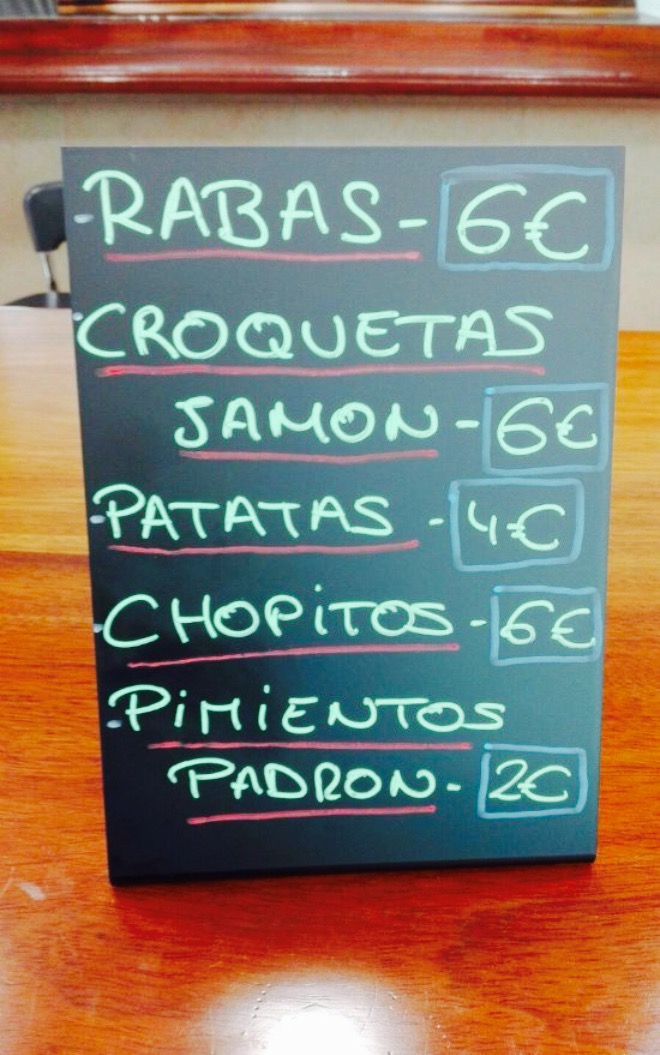 RABAS - 6€
CROQUETAS
JAMON - 6€
PATATAS - 4€
CHOPiTOS - 6€
PiMiENTOS
PADRON - 2€